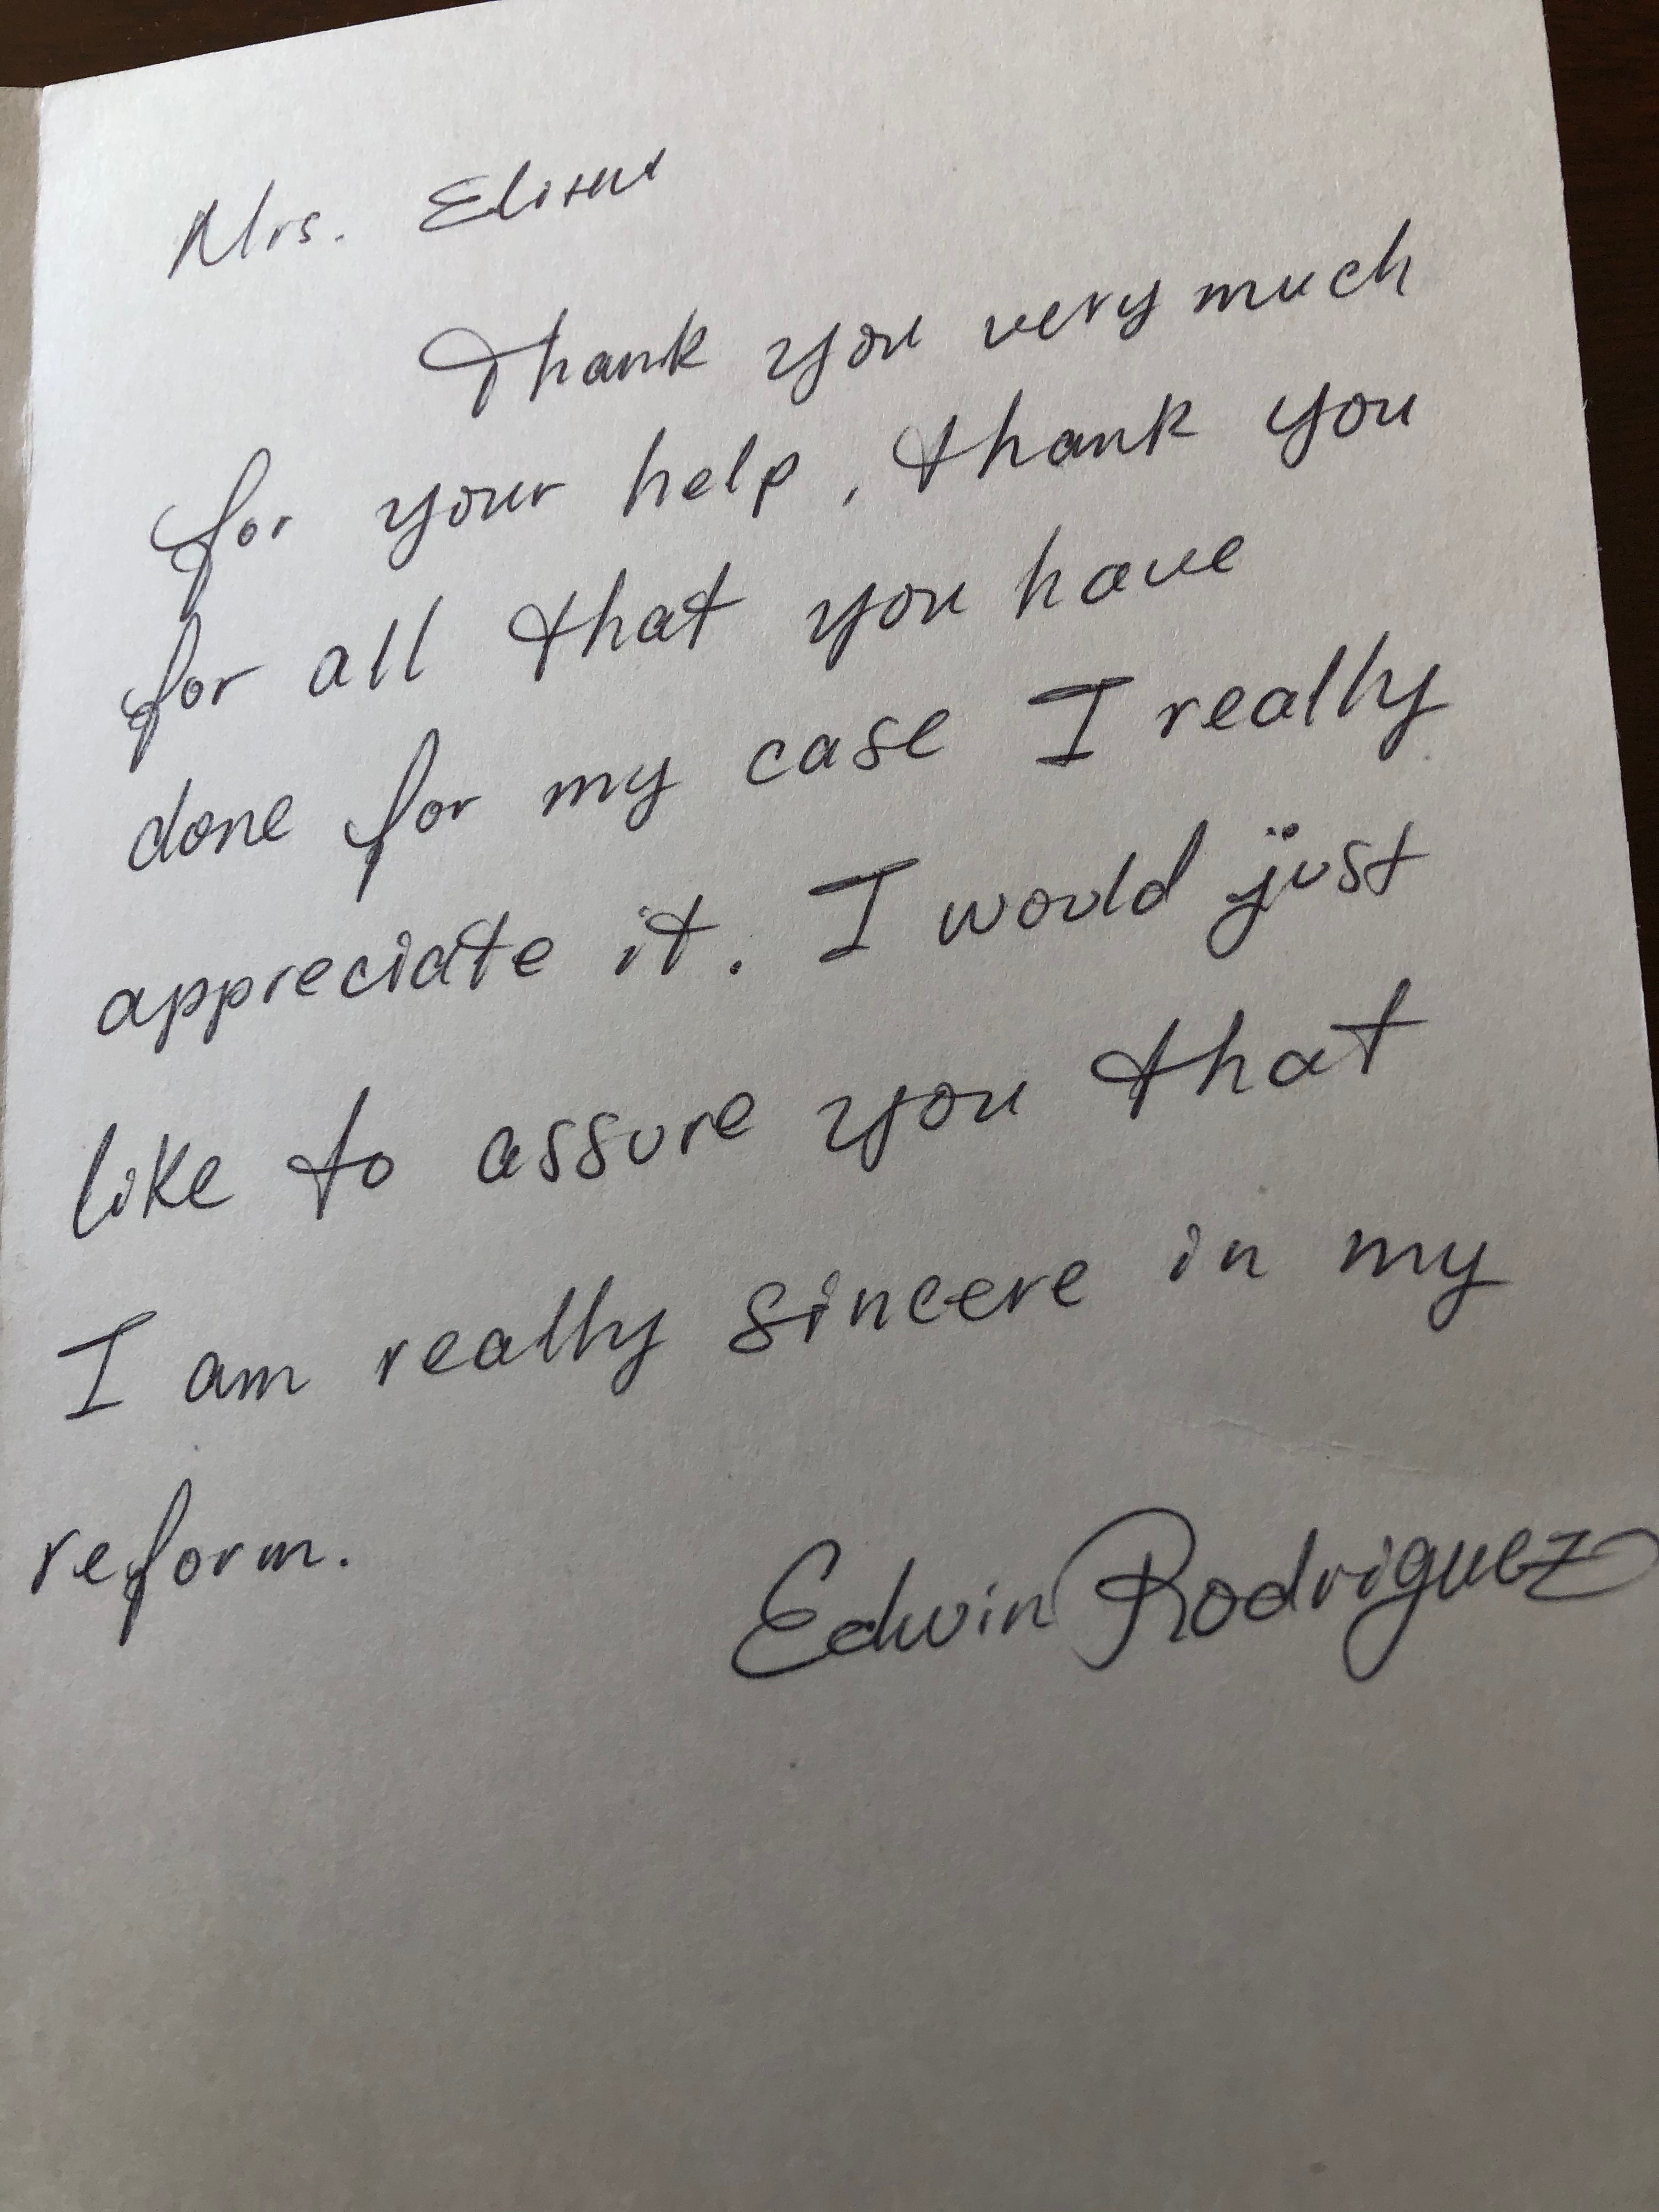 Mrs.
Thank you very much
for your help, thank you
for all that you have
done for my case I really
appreciate it. I would just
like to assure you that
I am really sincere in my
reform.
Edwin Rodriguez